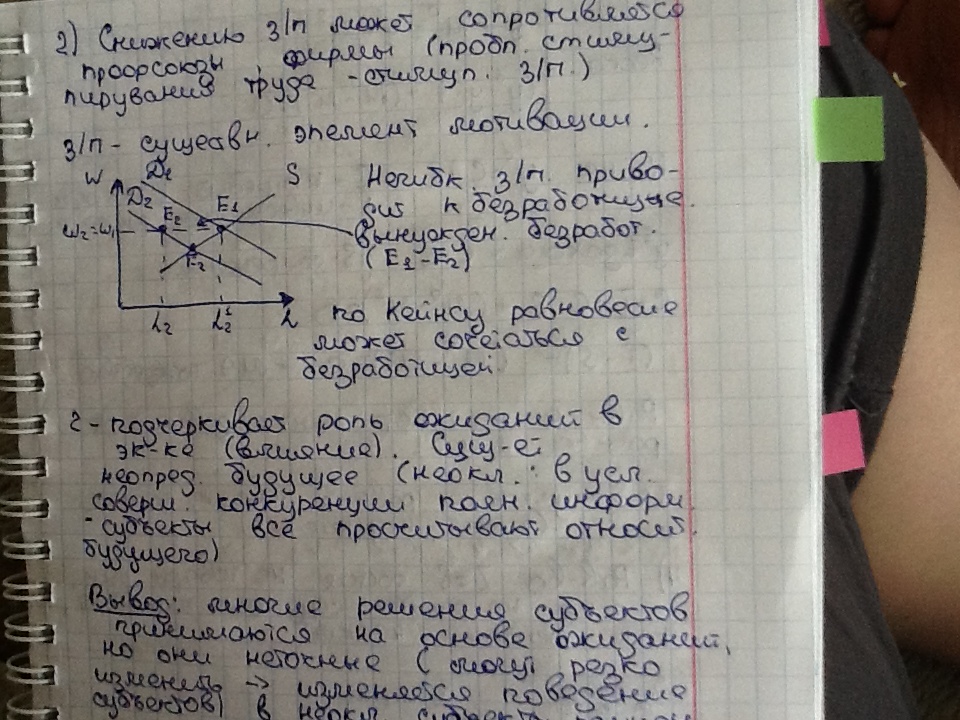 2) Снижению з/п может сопротивляется
профсоюзы, фирмы (пробл. стиму-
лирувания труда - стимул. з/п.)
з/п - существ. элемент мотивации.
W D1 S
D2 E2 E1
W2=W1
E2
L2 L L
Негибк. з/п. приво-
дит к безработице.
Вынужден. безработ.
(E1-E2)
по Кейнсу равновесие
может сочетаться с
безработицей.
2 - подчеркивает роль ожиданий в
эк-ке (влияние). Сущ-ет
неопред. будущее (неокл.: в усл.
соверш. конкуренции полн. информ.
- субъекты всё просчитывают относит.
будущего)
Вывод: многие решения субъектов
принимаются на основе ожиданий,
но они неточные (могут резко
изменить → изменяется поведение
субъектов) в неокл. субъекты